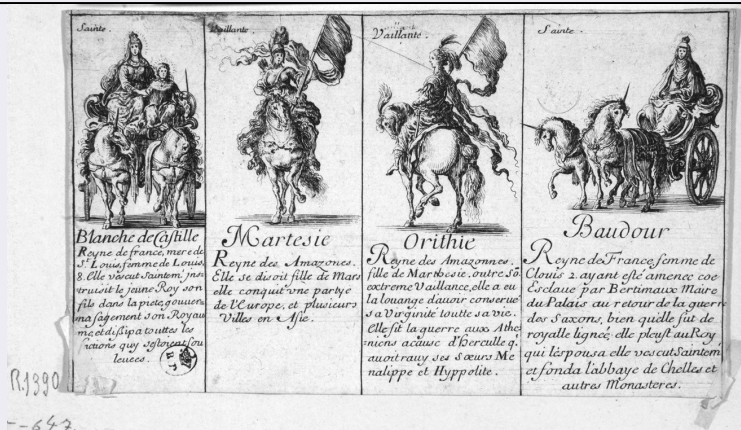 Sainte.
Blanche de Castille
Reyne de france, mere de
St. Louis, femme de Louis
8. Elle vescut Saintemt. ins
truisit le jeune Roy son
fils dans la pieté, gouver
na sagement son Royau
me, et dissipa touttes les
factions quy s'estoient sou
levées.
Vaillante.
Martesie
Reyne des Amazones.
Elle se disoit fille de Mars
elle conquit vne partye
de l'Europe, et plusieurs
Villes en Asie.
Vaillante.
Orithie
Reyne des Amazonnes.
fille de Marthesie, outre Sō
extreme Vaillance, elle a eu
la louange d'auoir conserué
sa Virginité toutte sa vie.
Elle fit la guerre aux Athe
niens a cause d'herculle q.
auoit rauy ses Sœurs Me
nalippe et Hyppolite.
Sainte.
Baudour
Reyne de France, femme de
Clouis 2. ayant esté amenée coē
Esclaue par Bertimaux Maire
du Palais au retour de la guerre
des Saxons, bien quélle fut de
royalle lignée, elle pleust au Roy,
qui léspousa, elle vescut Saintem
et fonda l'abbaye de Chelles et
autres Monasteres.
R.1390
647